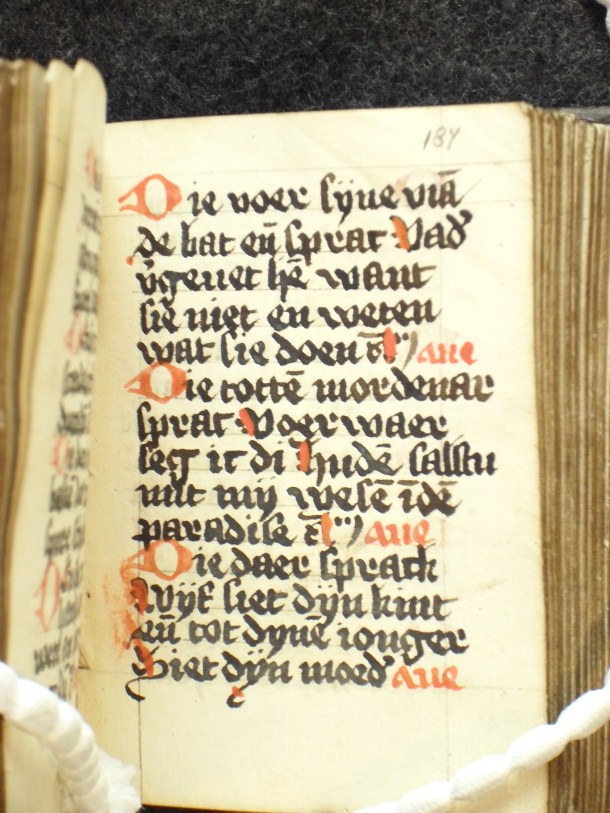 187
Die voer sijne viā
de bat eñ sprac Vad'
v'geuet hē want
sie niet en weten
wat sie doen Aue
Die tottē mordenar
sprac Voerwaer
seg ic di Hudē salstu
mit mij wesē idē
paradise Aue
Die daer sprack
Wijf siet dijn kint
eñ tot dynē ionger
Siet dijn moed' Aue